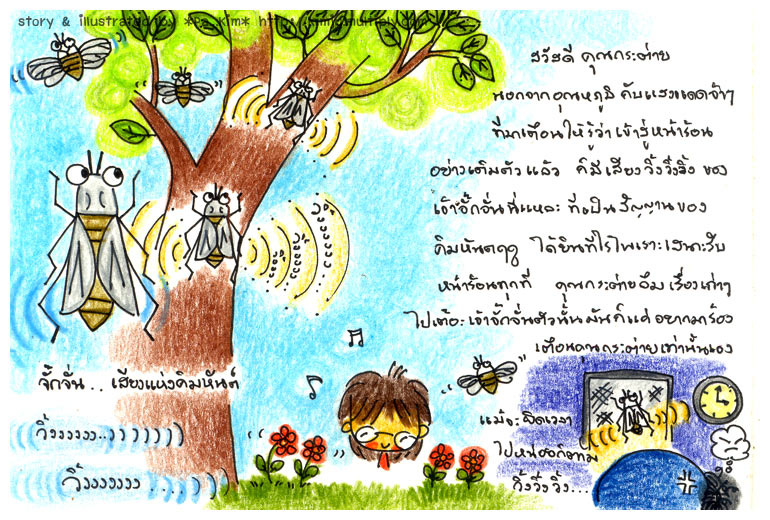 story & illustrated by *Pe_Kim* http://kim.multiply.com
สวัสดี คุณกระต่าย
นอกจากอุณหภูมิ กับแสงแดดจ้าๆ
ที่มาเตือนให้รู้ว่า เข้าสู่หน้าร้อน
อย่างเต็มตัว แล้ว ก็มี เสียงวิ้งวิ้งวิ้ง ของ
เจ้าจั๊กจั่นนี่แหละ ที่เป็น สัญญาณของ
คิมหันตฤดู ได้ยินทีไร
หน้าร้อนทุกที คุณกระต่ายยิ้ม เรื่องเก่าๆ
ไปเต๊อะ เจ้าจั๊กจั่นตัวนั้นมันก็แค่ อยากมาร้อง
เตือนคุณกระต่ายเท่านั้นเอง
จั๊กจั่น.. เสียงแห่งคิมหันต์
วิ้งงงงงง..
วิ้งงงงงงง...
แม้จะผิดเวลา
ไปหน่อยก็ตาม
วิ้งวิ้งวิ้ง...